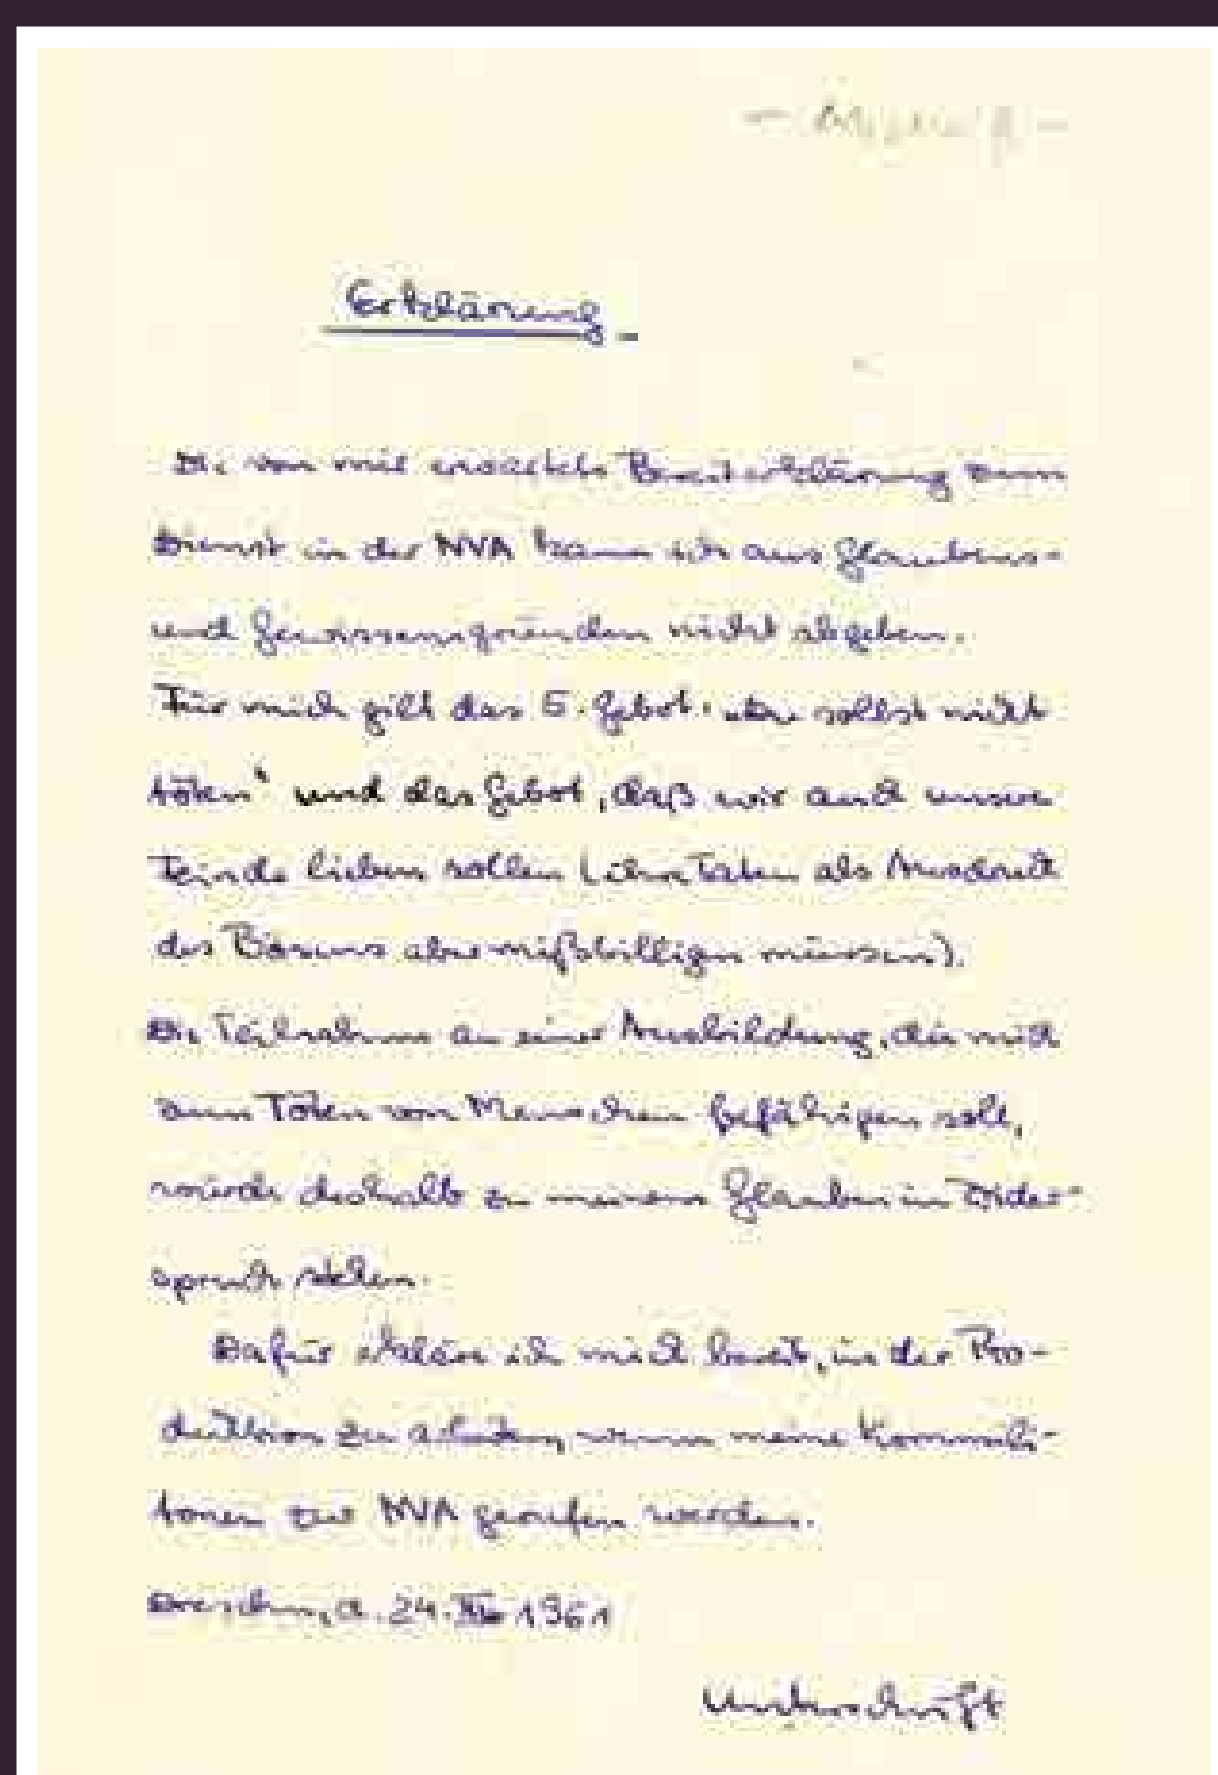 Erklärung
Die von mir erwartete Bereiterklärung zum
Dienst in der NVA kann ich aus Glaubens-
und Gewissensgründen nicht abgeben.
Für mich gilt das 5. Gebot: „Du sollst nicht
töten“ und das Gebot, daß wir auch unsere
Feinde lieben sollen (ihre Taten als Ausdruck
des Bösens aber mißbilligen müssen).
Die Teilnahme an einer Ausbildung, die mich
zum Töten von Menschen befähigen soll,
würde deshalb zu meinem Glauben in Wider-
spruch stehen.
Dafür erkläre ich mich bereit, in der Pro-
duktion zu arbeiten, wenn meine Kommili-
tonen zur NVA gerufen werden.
Dresden, d. 24. 1961
Unterschrift